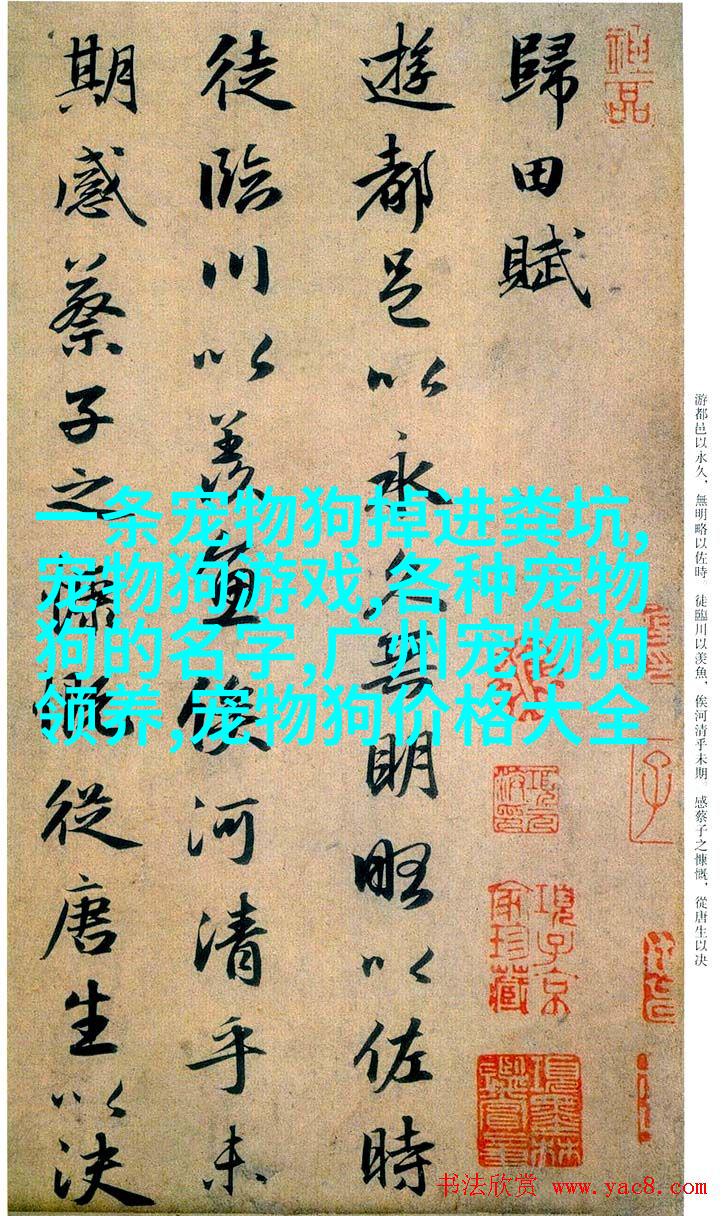 歸田賦
遊都邑以永久無明略以佐時
徒臨川以羨魚俟河清乎未
期感蔡子之慷慨從唐生以決
一条宠物狗掉进粪坑,
宠物狗游戏,各种宠物
狗的名字,广州宠物狗
领养,宠物狗价格大全
游都邑以永久，無明略以佐時。徒臨川以羨魚，俟河清乎未期。感蔡子之慷慨，從唐生以决
項子京
家珍藏
項墨林
鑑賞章
书法欣赏 www.yac8.com